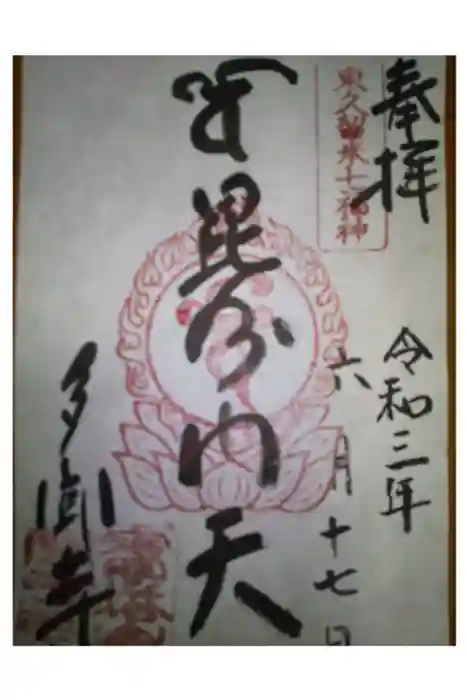 奉拝
令和三年
東久留米七福神
六月十七日
毘沙門天
多聞寺